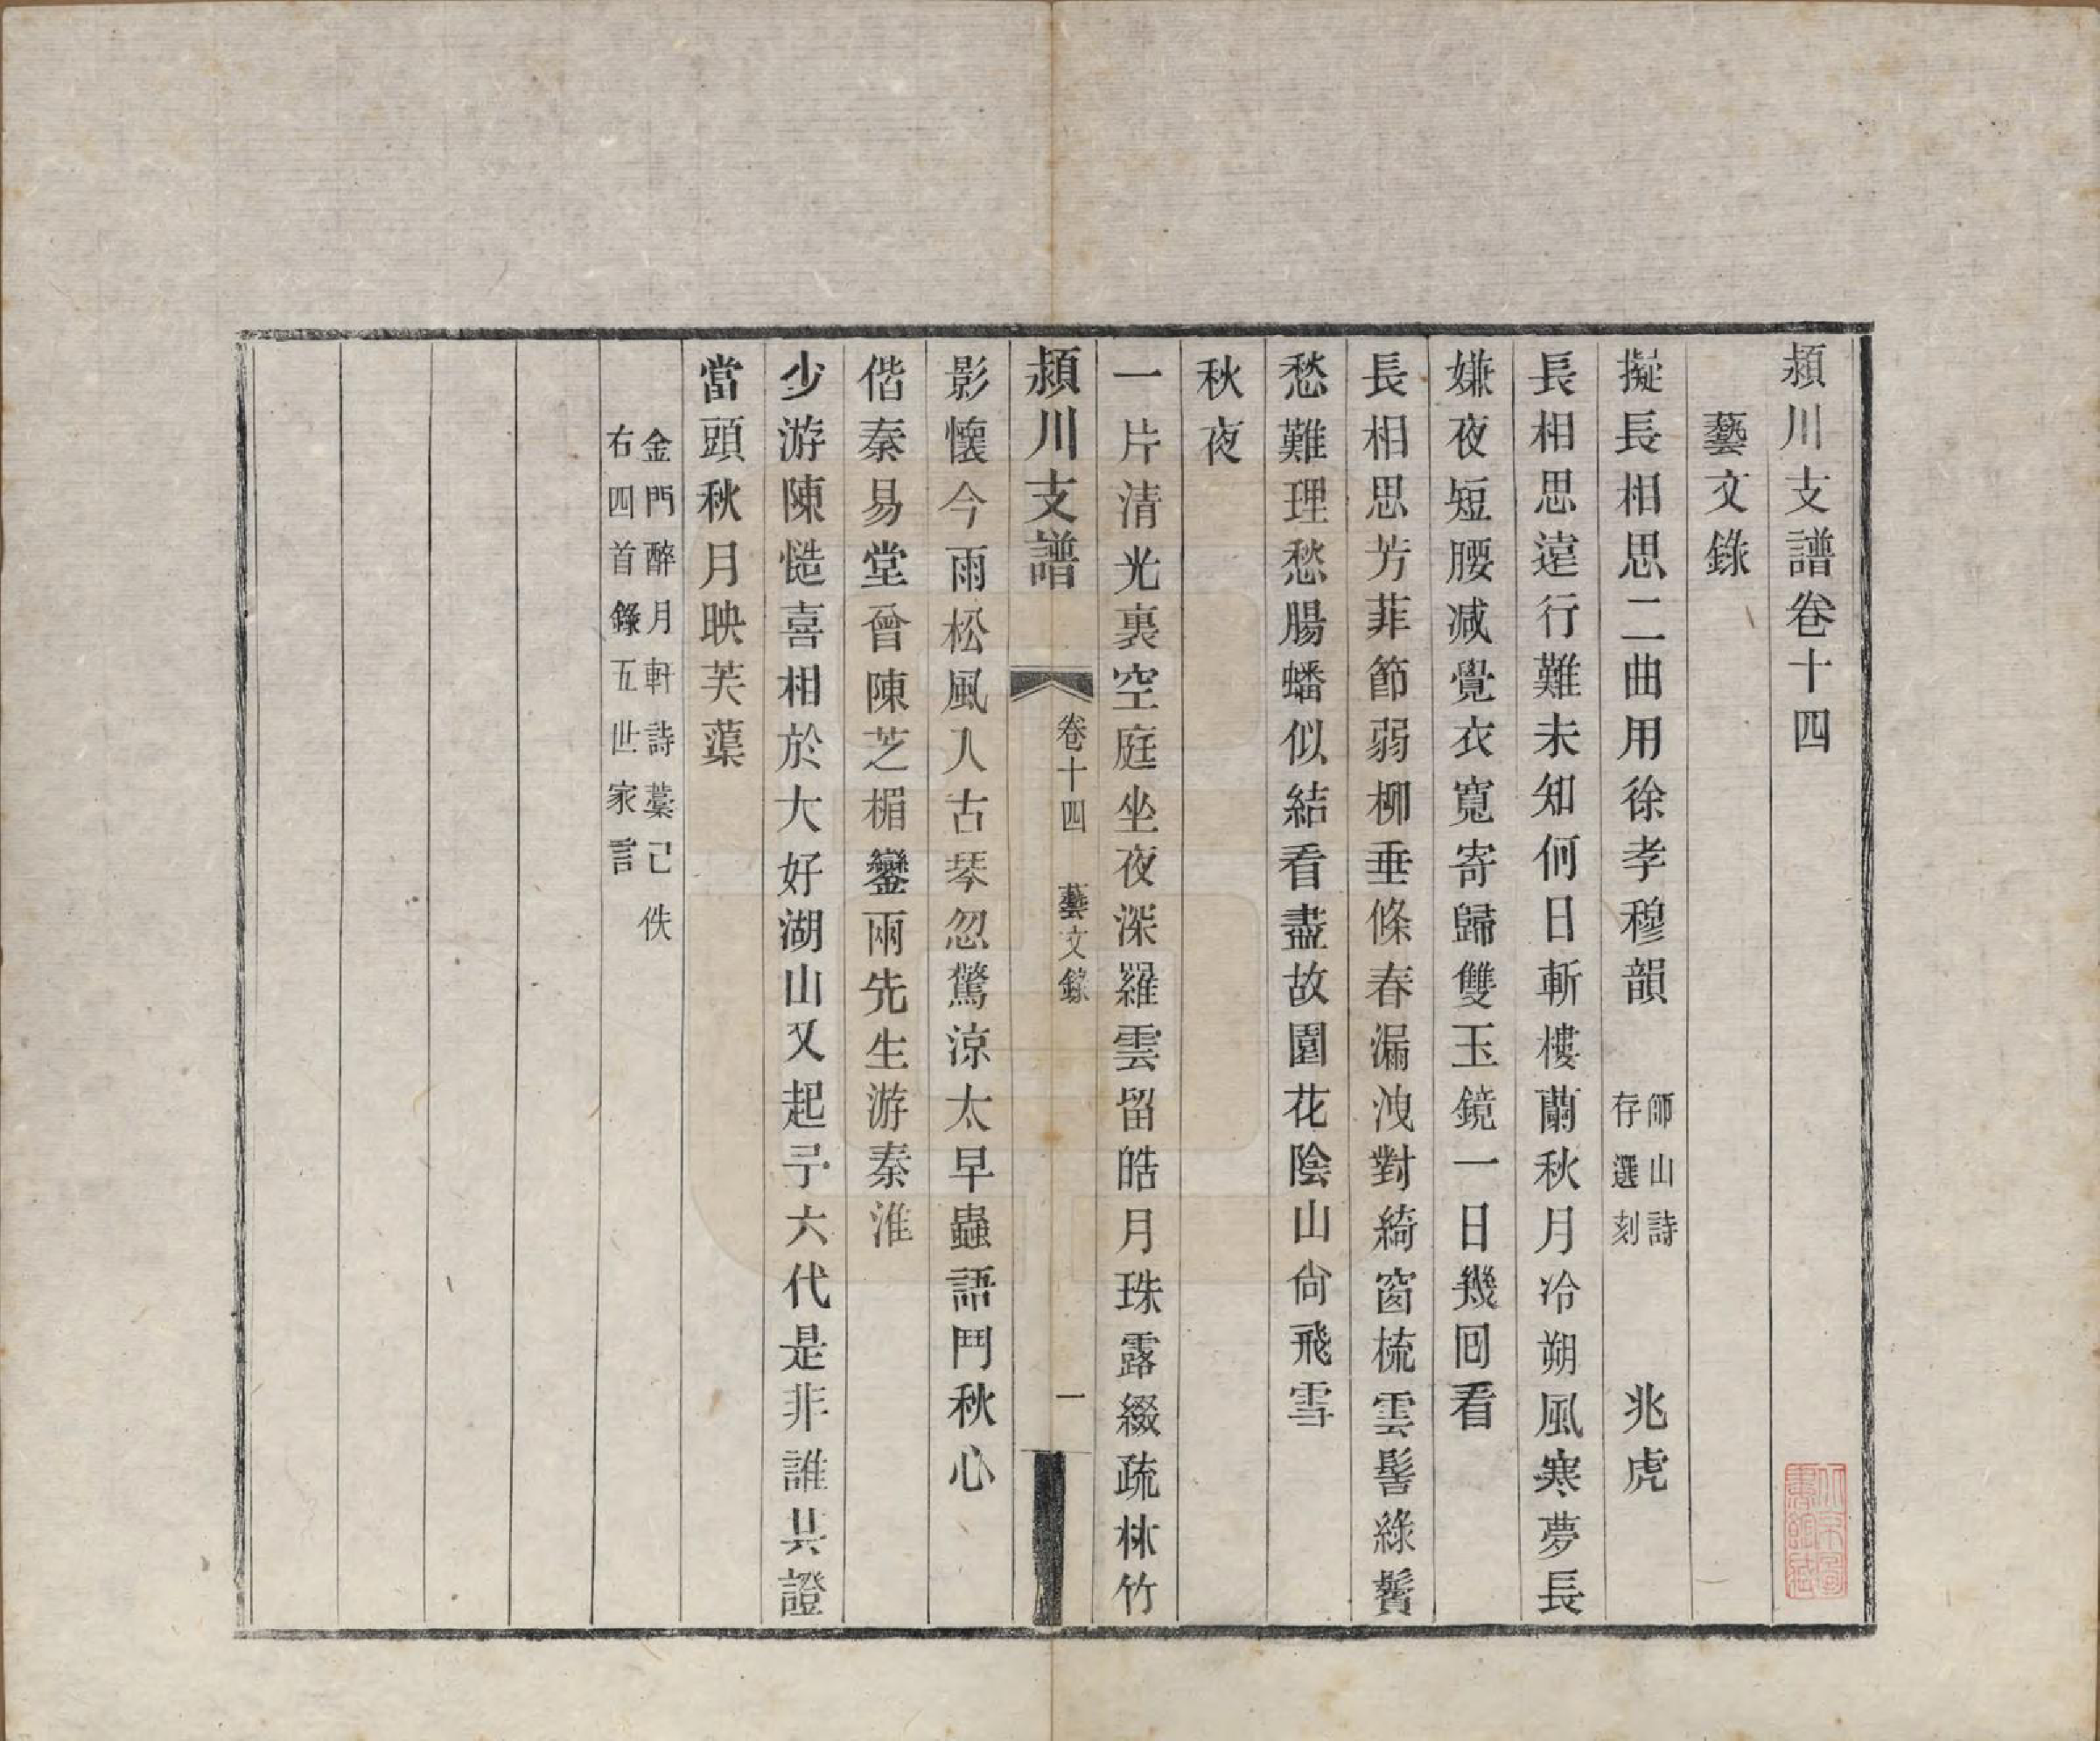 潁川支譜卷十四
藝文錄
擬長相思二曲用徐孝穆韻 師山詩存選刻 兆虎
長相思遠行難未知何日斬樓蘭秋月冷朔風寒夢長
嫌夜短腰減覺衣寬寄歸雙玉鏡一日幾回看
長相思芳菲節弱柳垂條春漏洩對綺窗梳雲髻綠鬢
愁難理愁腸蟠似結看盡故園花陰山尙飛雪
秋夜
一片清光裏空庭坐夜深羅雲留皓月珠露綴疏林竹
潁川支譜 卷十四 藝文錄 一
影懷今雨松風入古琴忽驚涼太早蟲語鬥秋心
偕秦易堂曾陳芝楣鑾兩先生游秦淮
少游陳慥喜相於大好湖山又起予六代是非誰共證
當頭秋月映芙蕖
金門醉月軒詩藁已佚
右四首錄五世家言